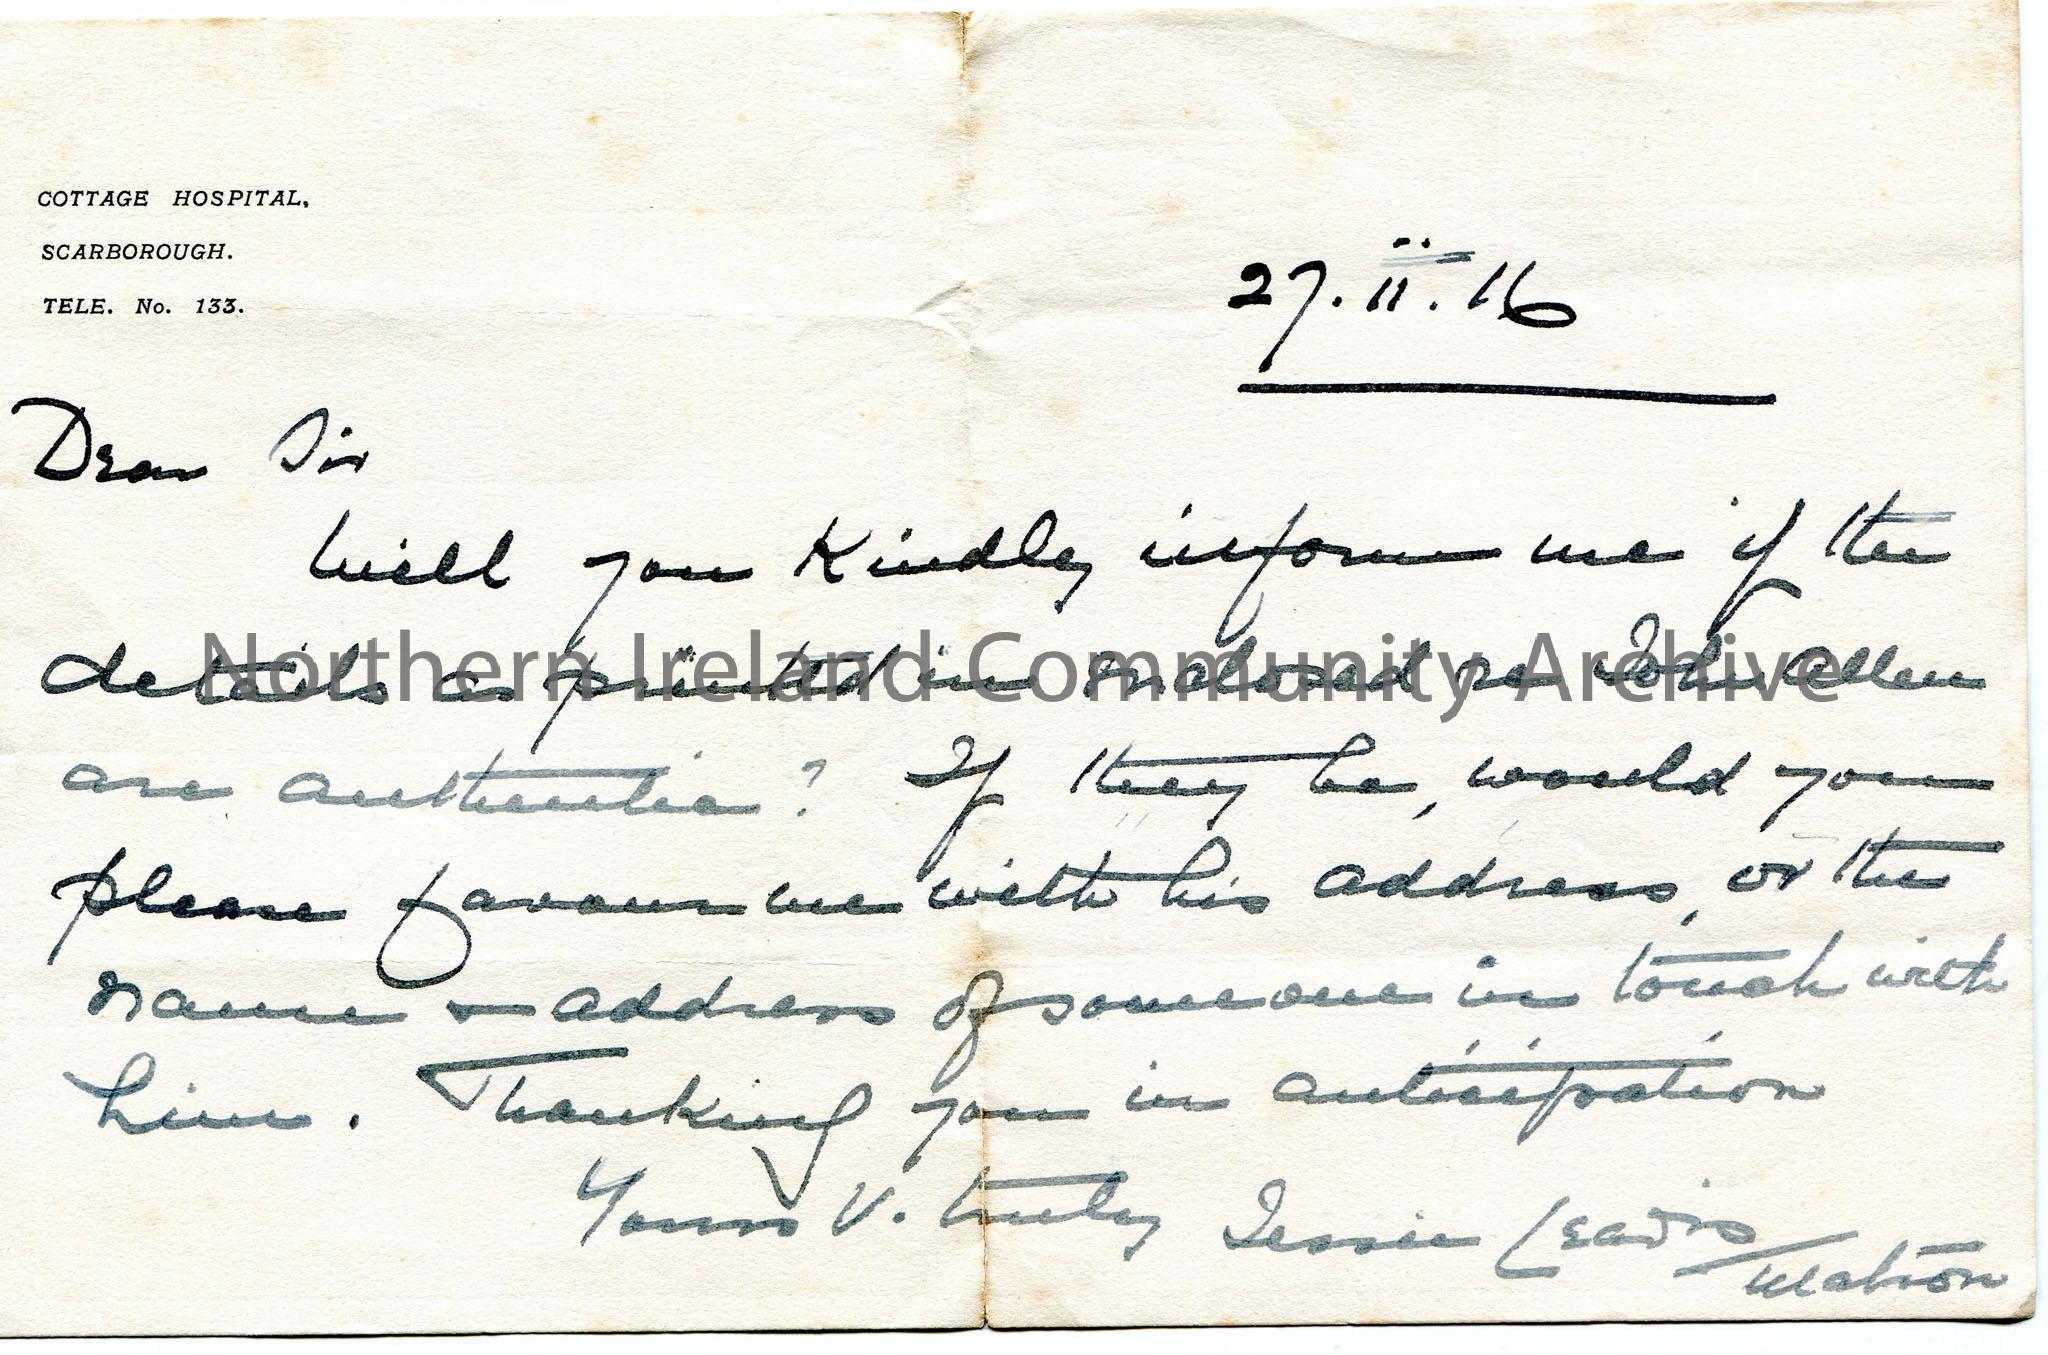 COTTAGE HOSPITAL,
SCARBOROUGH.
TELE. No. 133.
27.II.16
Dear Sir
Will you kindly inform me if the
details as printed in enclosed re John Allen
are authentic? If they be, would you
please favour me with his address, or the
name & address of someone in touch with
him. Thanking you in anticipation
Yours V. truly Jessie
Matron
Northern Ireland Community Archive